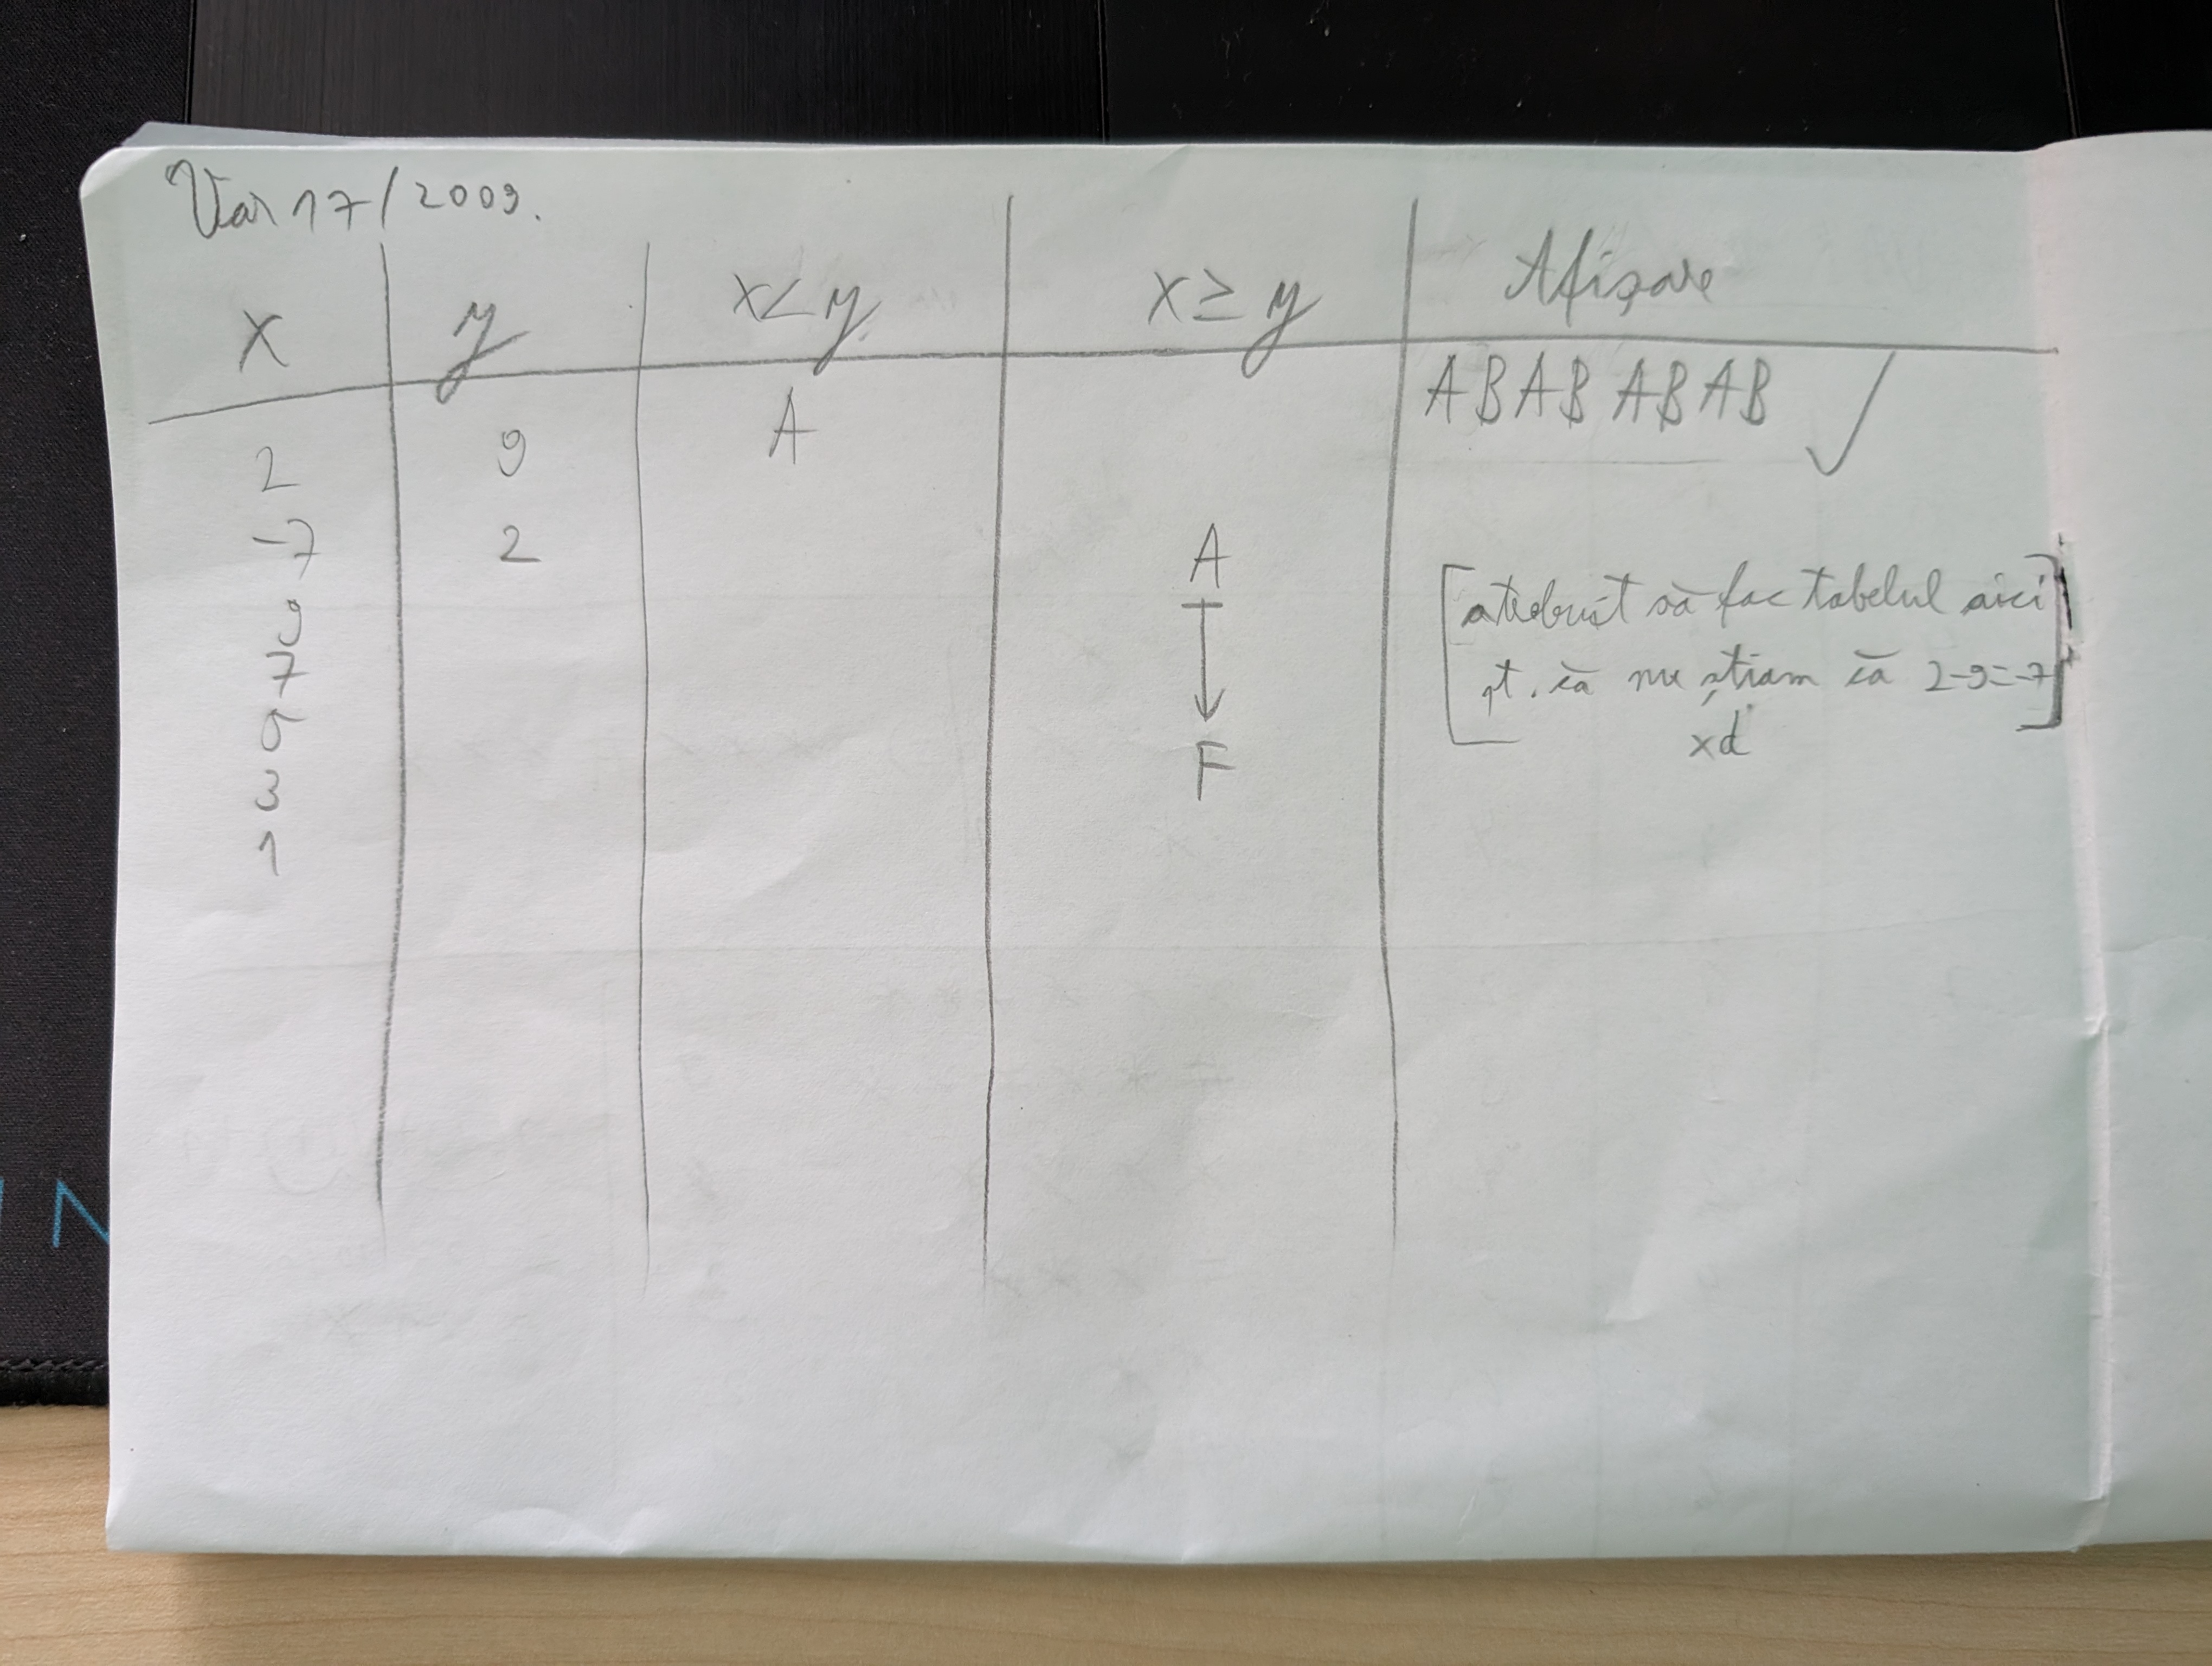 Var 17/2009.
x y x<y x≥y Afișare
2 9 A ABABABAB ✓
-7 2 A
9
7
5
3
1
↓
F
[a trebuit să fac tabelul aici
pt. că nu știam că 2-9=-7]
xd
IN